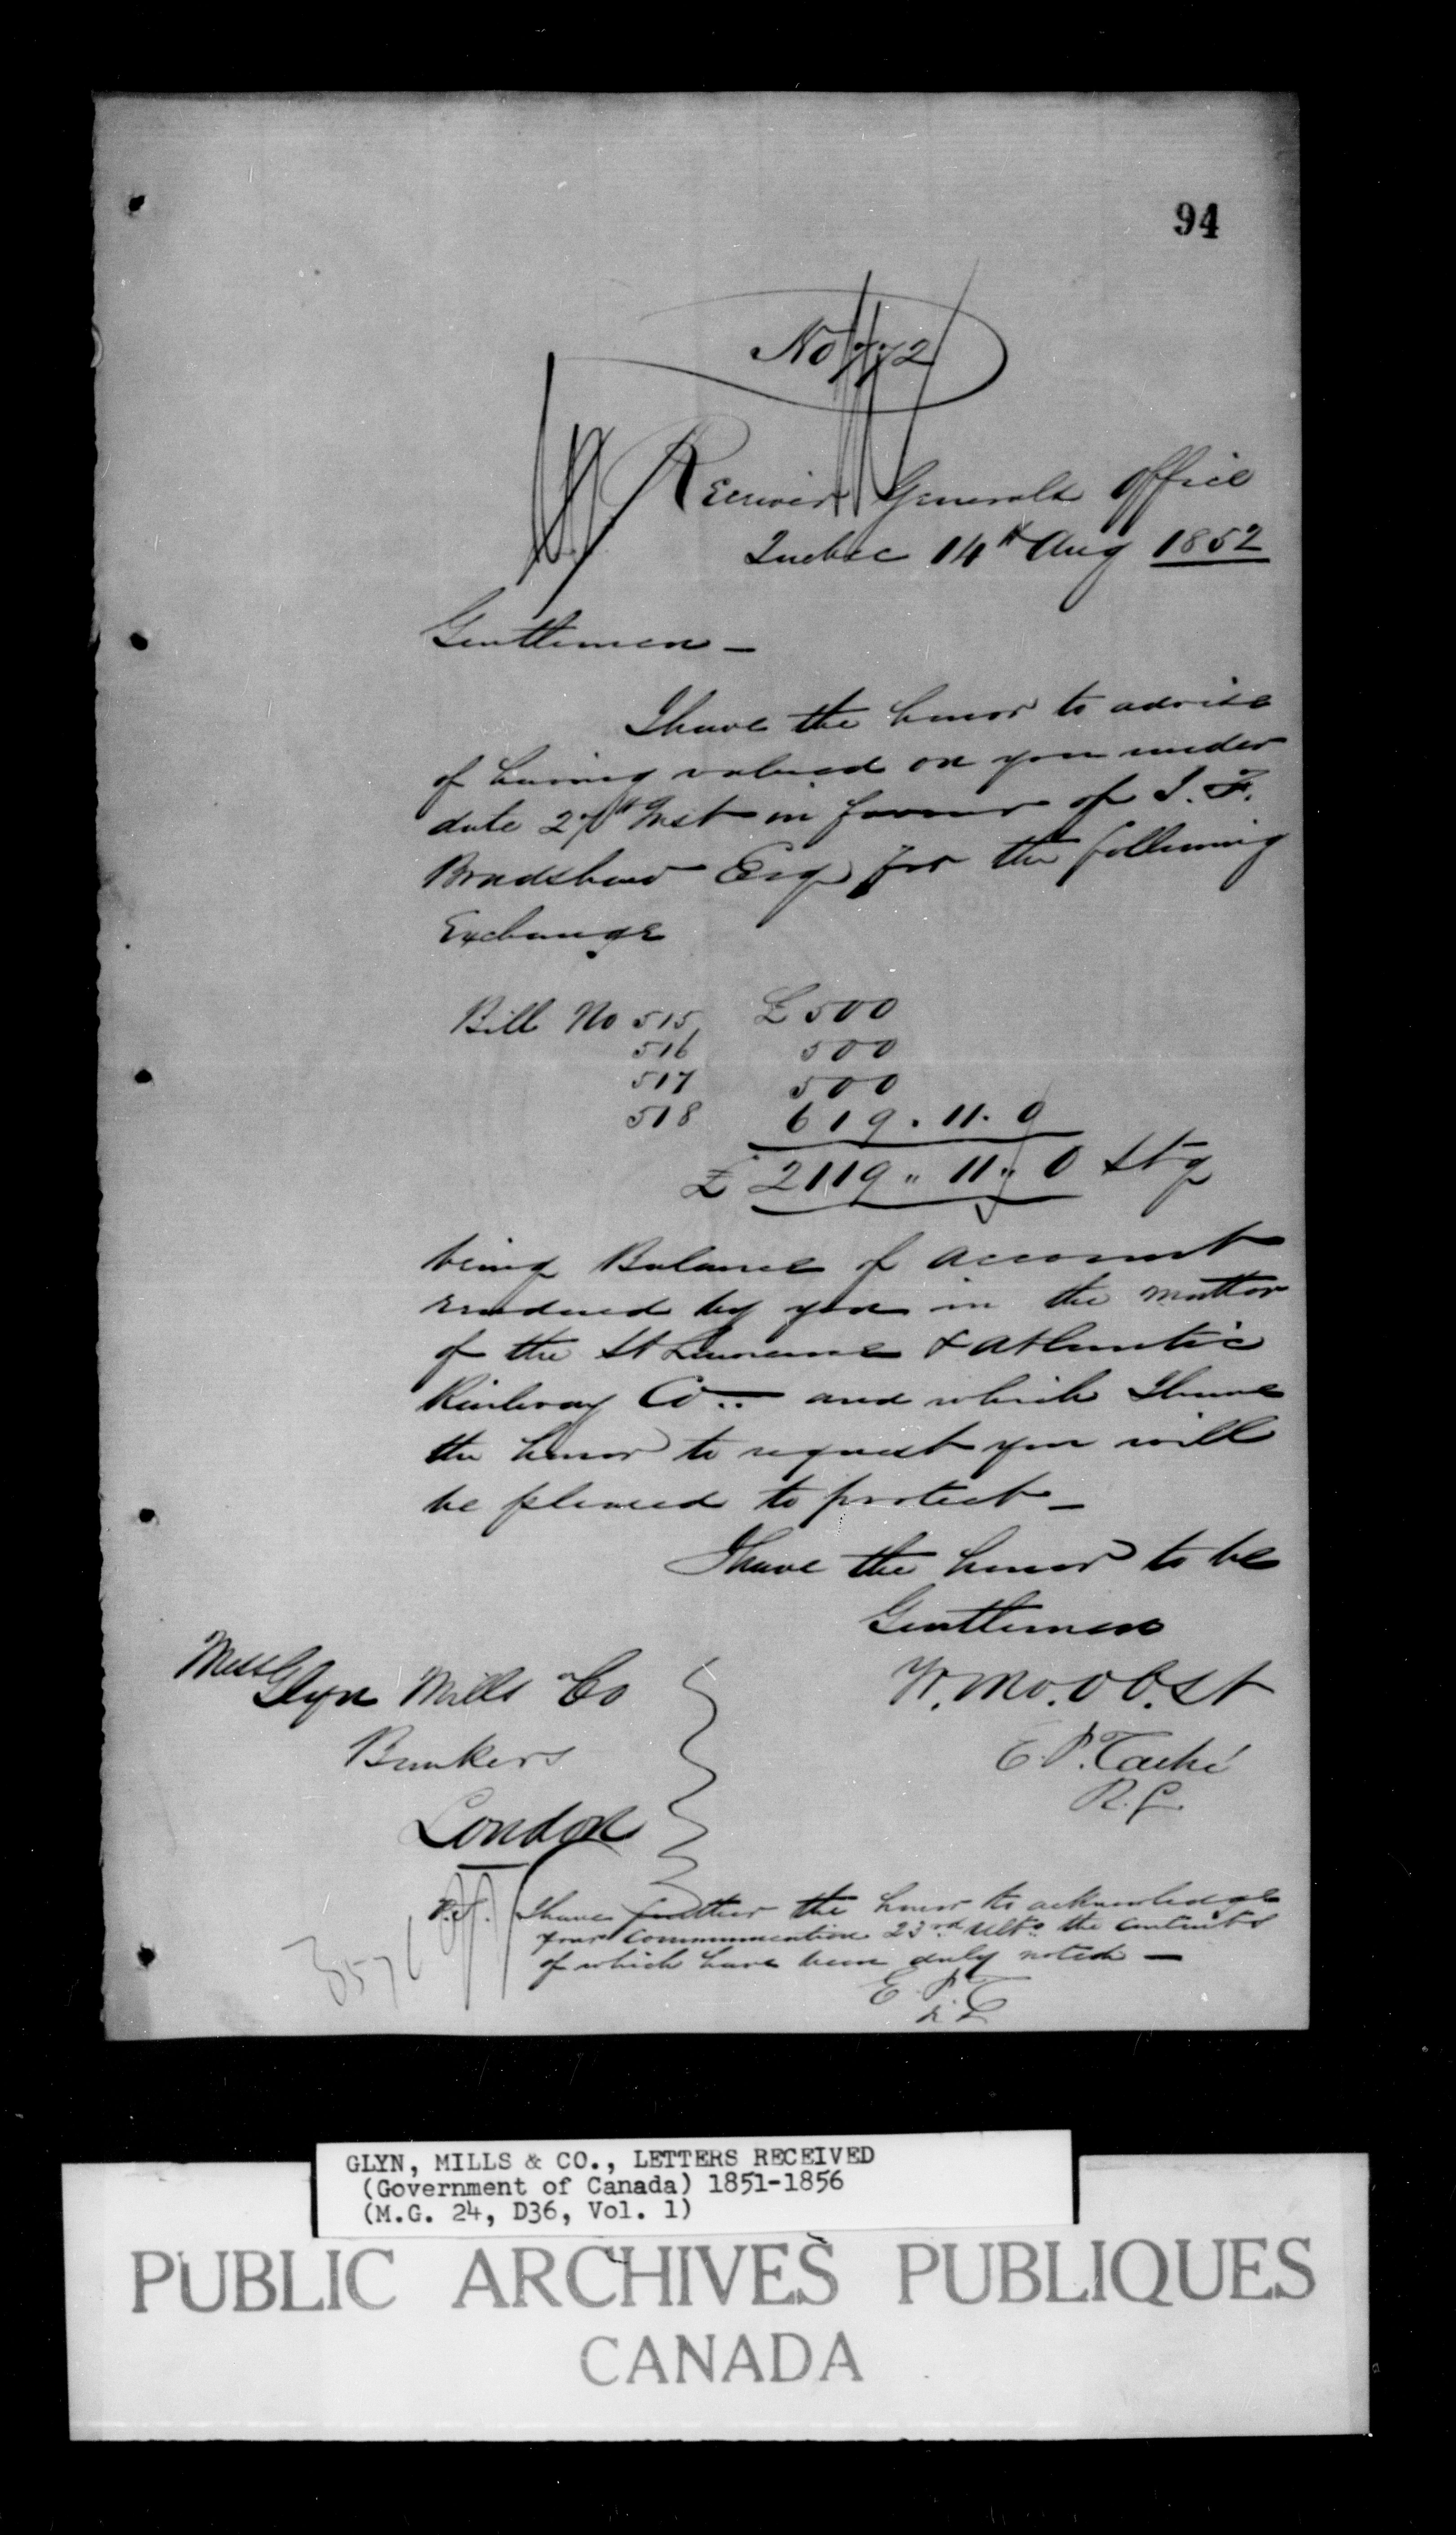 94
No 772
Receiver Generals Office
Quebec 14th Aug 1852
Gentlemen –
I have the honor to advise
of having valued on you under
date 27th Inst in favour of I. F.
Bradshaw Esq for the following
Exchange
Bill No 515 £ 500
516 500
517 500
518 619 . 11 . 0
£ 2119 " 11 " 0 Stg
being Balance of account
rendered by you in the matter
of the St Lawrence & Atlantic
Railway Co.. and which I have
the honor to request you will
be pleased to protect –
I have the honor to be
Gentlemen
Yr. Mo. O b. St
Mess Glyn Mills Co
Bankers
London
E. P. Taché
R. G.
P.S. I have further the honor to acknowledge
your communication 23rd ulto. the contents
of which have been duly noted –
E. P. T
GLYN, MILLS & CO., LETTERS RECEIVED
(Government of Canada) 1851-1856
(M.G. 24, D36, Vol. 1)
PUBLIC ARCHIVES PUBLIQUES
CANADA